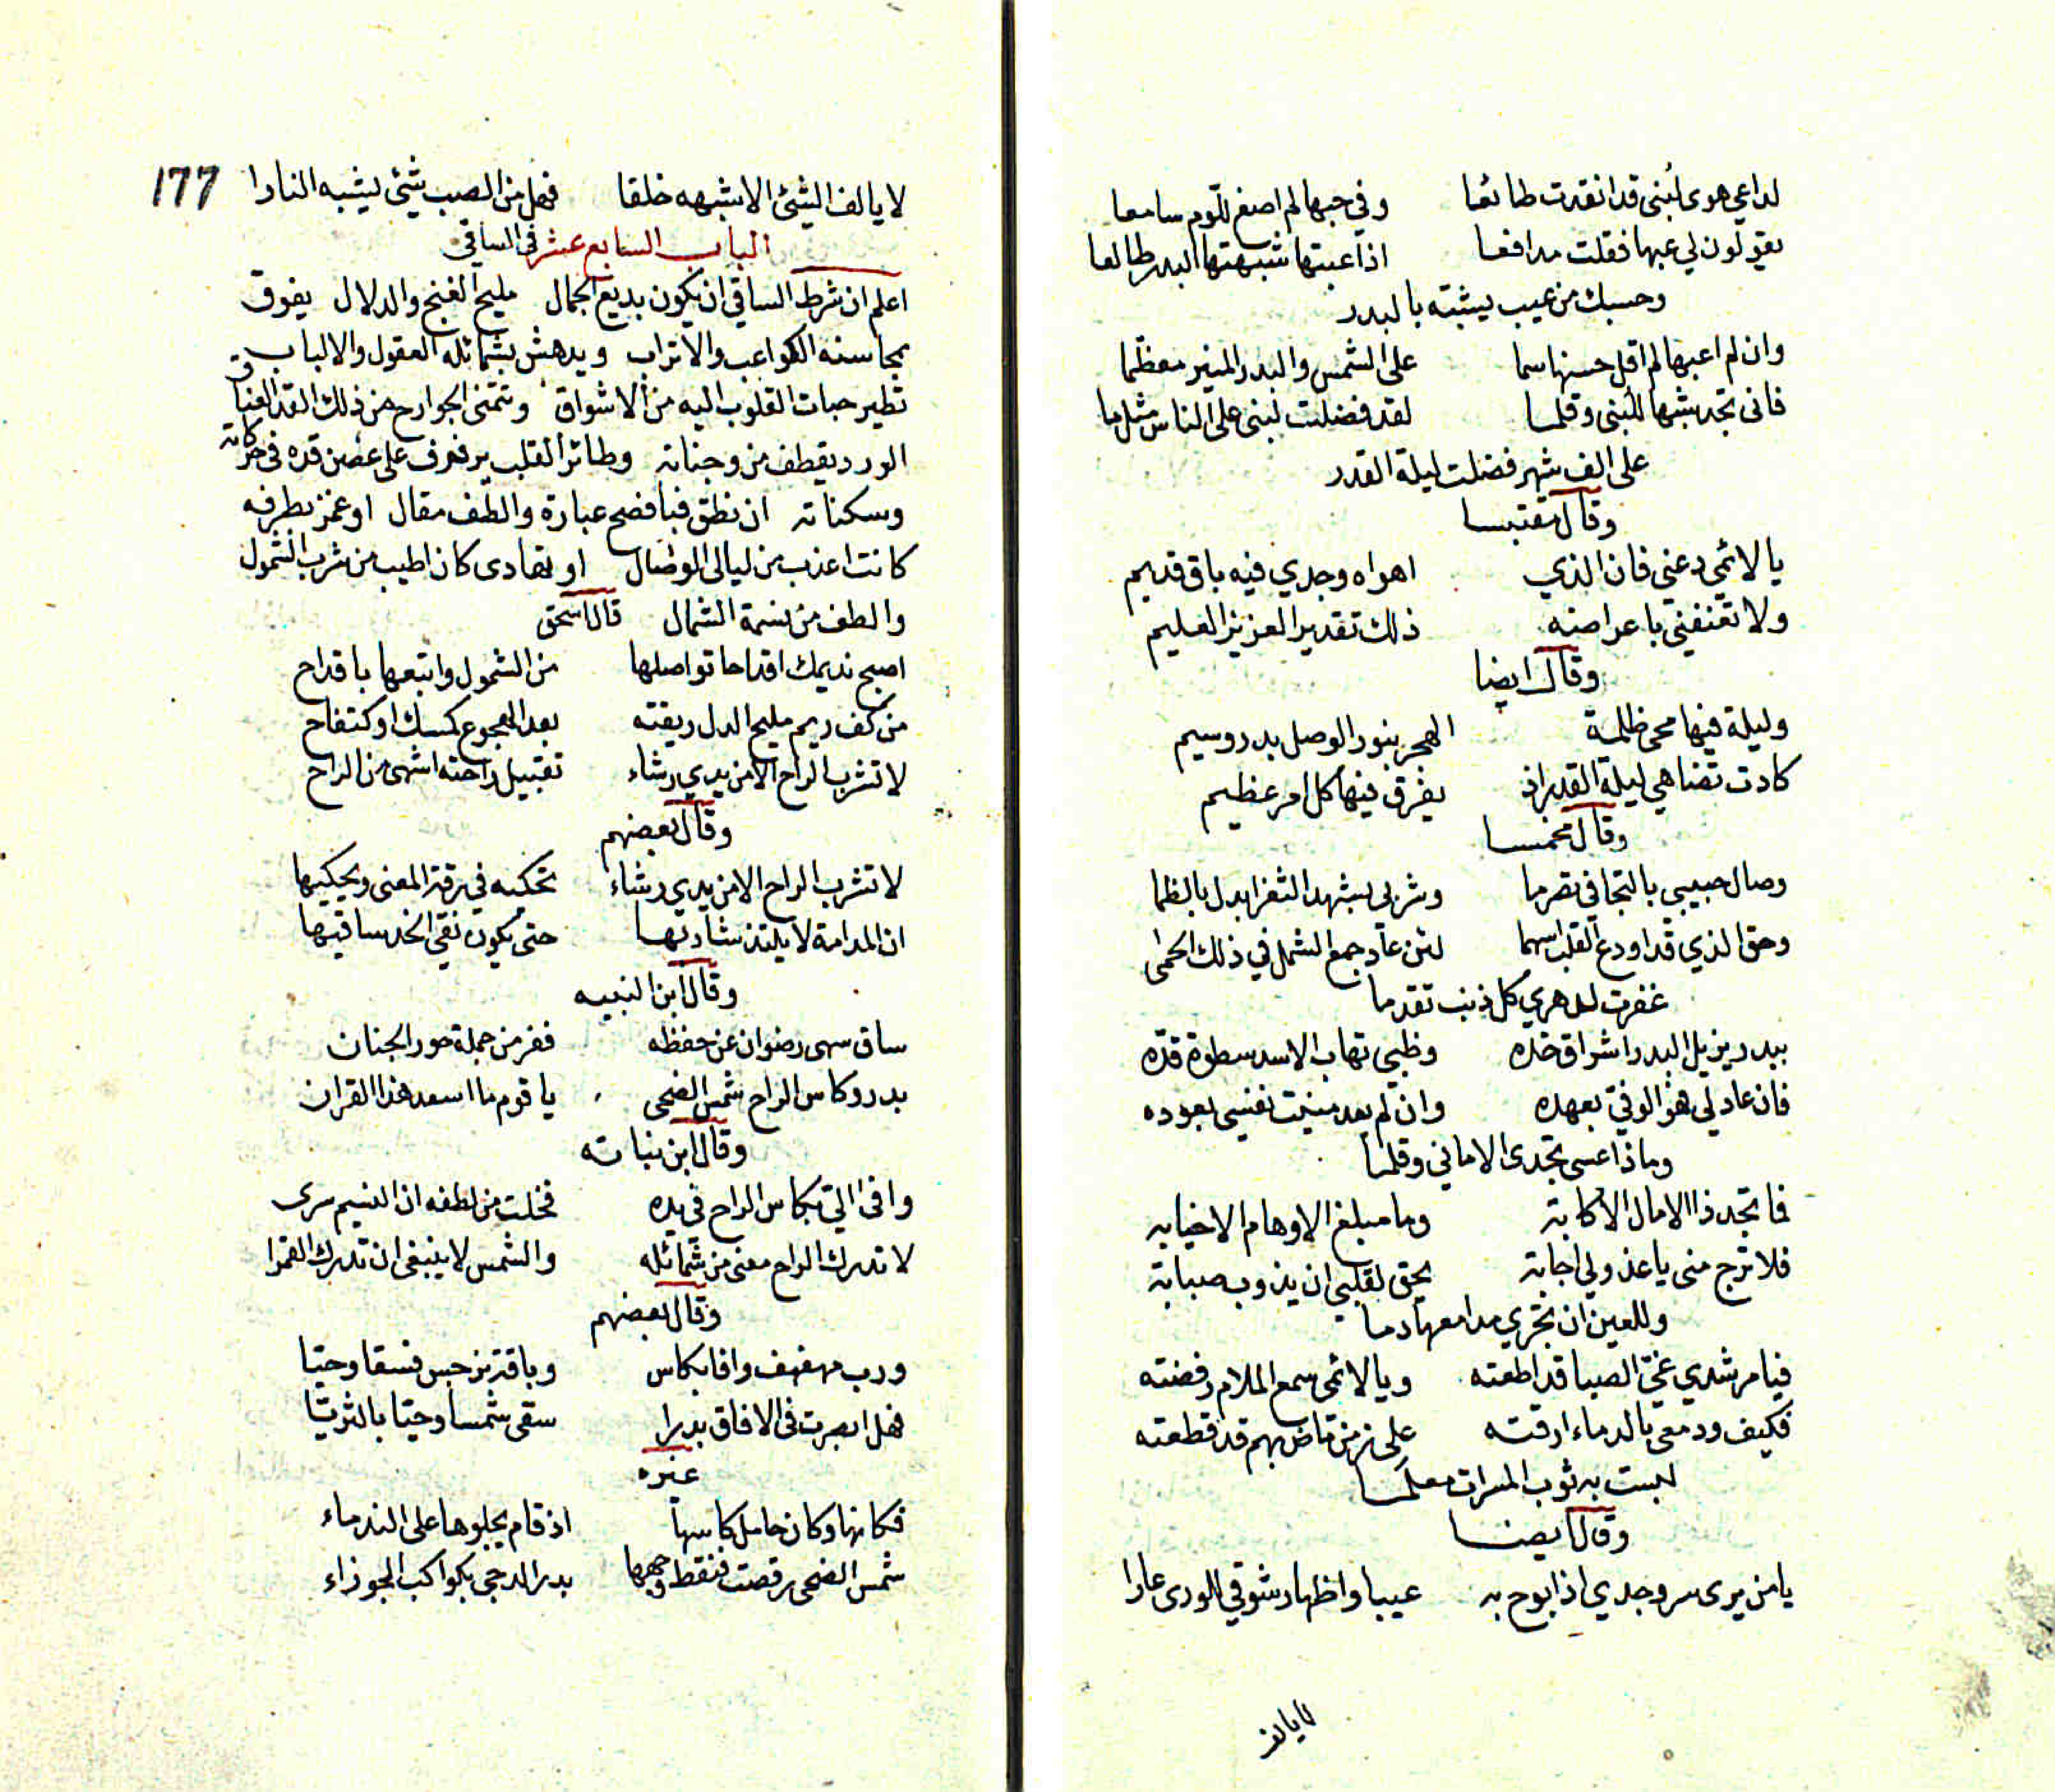 لداعي هوى لبنى قد انقدت طائعا وفي حبها لم اصغ للوم سامعا
يقولون لي عبها فقلت مدافعا اذا عبتها شبهتها البدر طالعا
وحسبك من عيب يشبه بالبدر
وان لم اعبها لم اقل حسنها سما على الشمس والبدر المنير معظما
فانى تجد شبها للبنى وقلما لقد فضلت لبنى على الناس مثل ما
على الف شهر فضلت ليلة القدر
وقال مقتبسا
يا لائمي دعني فان الذي اهواه وجدي فيه باق قديم
ولا تعنفني باعراضه ذلك تقدير العزيز العليم
وقال ايضا
وليلة فيها محى ظلمة الهجر بنور الوصل بدر وسيم
كادت تضاهي ليلة القدر اذ يفرق فيها كل امر عظيم
وقال مخمسا
وصال حبيبي بالتجافي تصرما وشربي بشهد الثغر ابدل بالظما
وحق الذي قد اودع القلب اسهما لئن عاد جمع الشمل في ذلك الحمى
غفرت لدهري كل ذنب تقدما
ببدر يزيل البدر اشراق خده وظبي تهاب الاسد سطوة قده
فان عاد لي هو الوفي بعهده وان لم يعد منيت نفسي بعوده
وماذا عسى تجدى الاماني وقلما
فما تجد ذا الامال الا كابة وما مبلغ الاوهام الا خيابه
فلا ترج مني يا عذولي اجابة يحق لقلبي ان يذوب صبابة
وللعين ان تجري مدامعها دما
فيا مرشدي غي الصبا قد اطعته ويا لائمي سمع الملام رفضته
فكيف ودمعي بالدماء ارقته على زمن ماض بهم قد قطعته
لبست به ثوب المسرات معلما
وقال ايضا
يا من يرى سر وجدي اذ ابوح به عيبا واظهار شوقي للورى عارا
لا يالف
177
لا يالف الشئ الا شبهه خلقا فهل من الصب شئ يشبه النارا
الباب السابع عشر في الساقي
اعلم ان شرط الساقي ان يكون بديع الجمال مليح الغنج والدلال يفوق
بمحاسنه الكواعب والاتراب ويدهش بشمائله العقول والالباب
تطير حبات القلوب اليه من الاشواق وتتمنى الجوارح من ذلك القد العناق
الورد يقطف من وجناته وطائر القلب يرفرف على غصن قده في حركاته
وسكناته ان نطق فبافصح عبارة والطف مقال او غمز بطرفه
كانت اعذب من ليالي الوصال او تهادى كان اطيب من شرب الشمول
والطف من نسمة الشمال قال اسحق
اصبح نديمك اقداحا تواصلها من الشمول واتبعها باقداح
من كف ريم مليح الدل ريقته بعد الهجوع كمسك او كتفاح
لا تشرب الراح الا من يدي رشاء تقبيل راحته اشهى من الراح
وقال بعضهم
لا تشرب الراح الا من يدي رشاء تحكيه في رقة المعنى ويحكيها
ان المدامة لا يلتذ شاربها حتى يكون نقي الخد ساقيها
وقال ابن النبيه
ساق سهى رضوان عن حفظه ففر من جملة حور الجنان
بدر وكاس الراح شمس الضحى يا قوم ما اسعد هذا القران
وقال ابن نباته
وافى الي بكاس الراح في يده فخلت من لطفه ان النسيم سرى
لا تدرك الراح معنى من شمائله والشمس لا ينبغي ان تدرك القمرا
وقال بعضهم
ورب مهفهف وافا بكاس وباقة نرجس فسقا وحيا
فهل ابصرت في الافاق بدرا سقى شمسا وحيا بالثريا
غيره
فكانها وكان حامل كاسها اذ قام يجلوها على الندماء
شمس الضحى رقصت فنقط وجهها بدر الدجى بكواكب الجوزاء